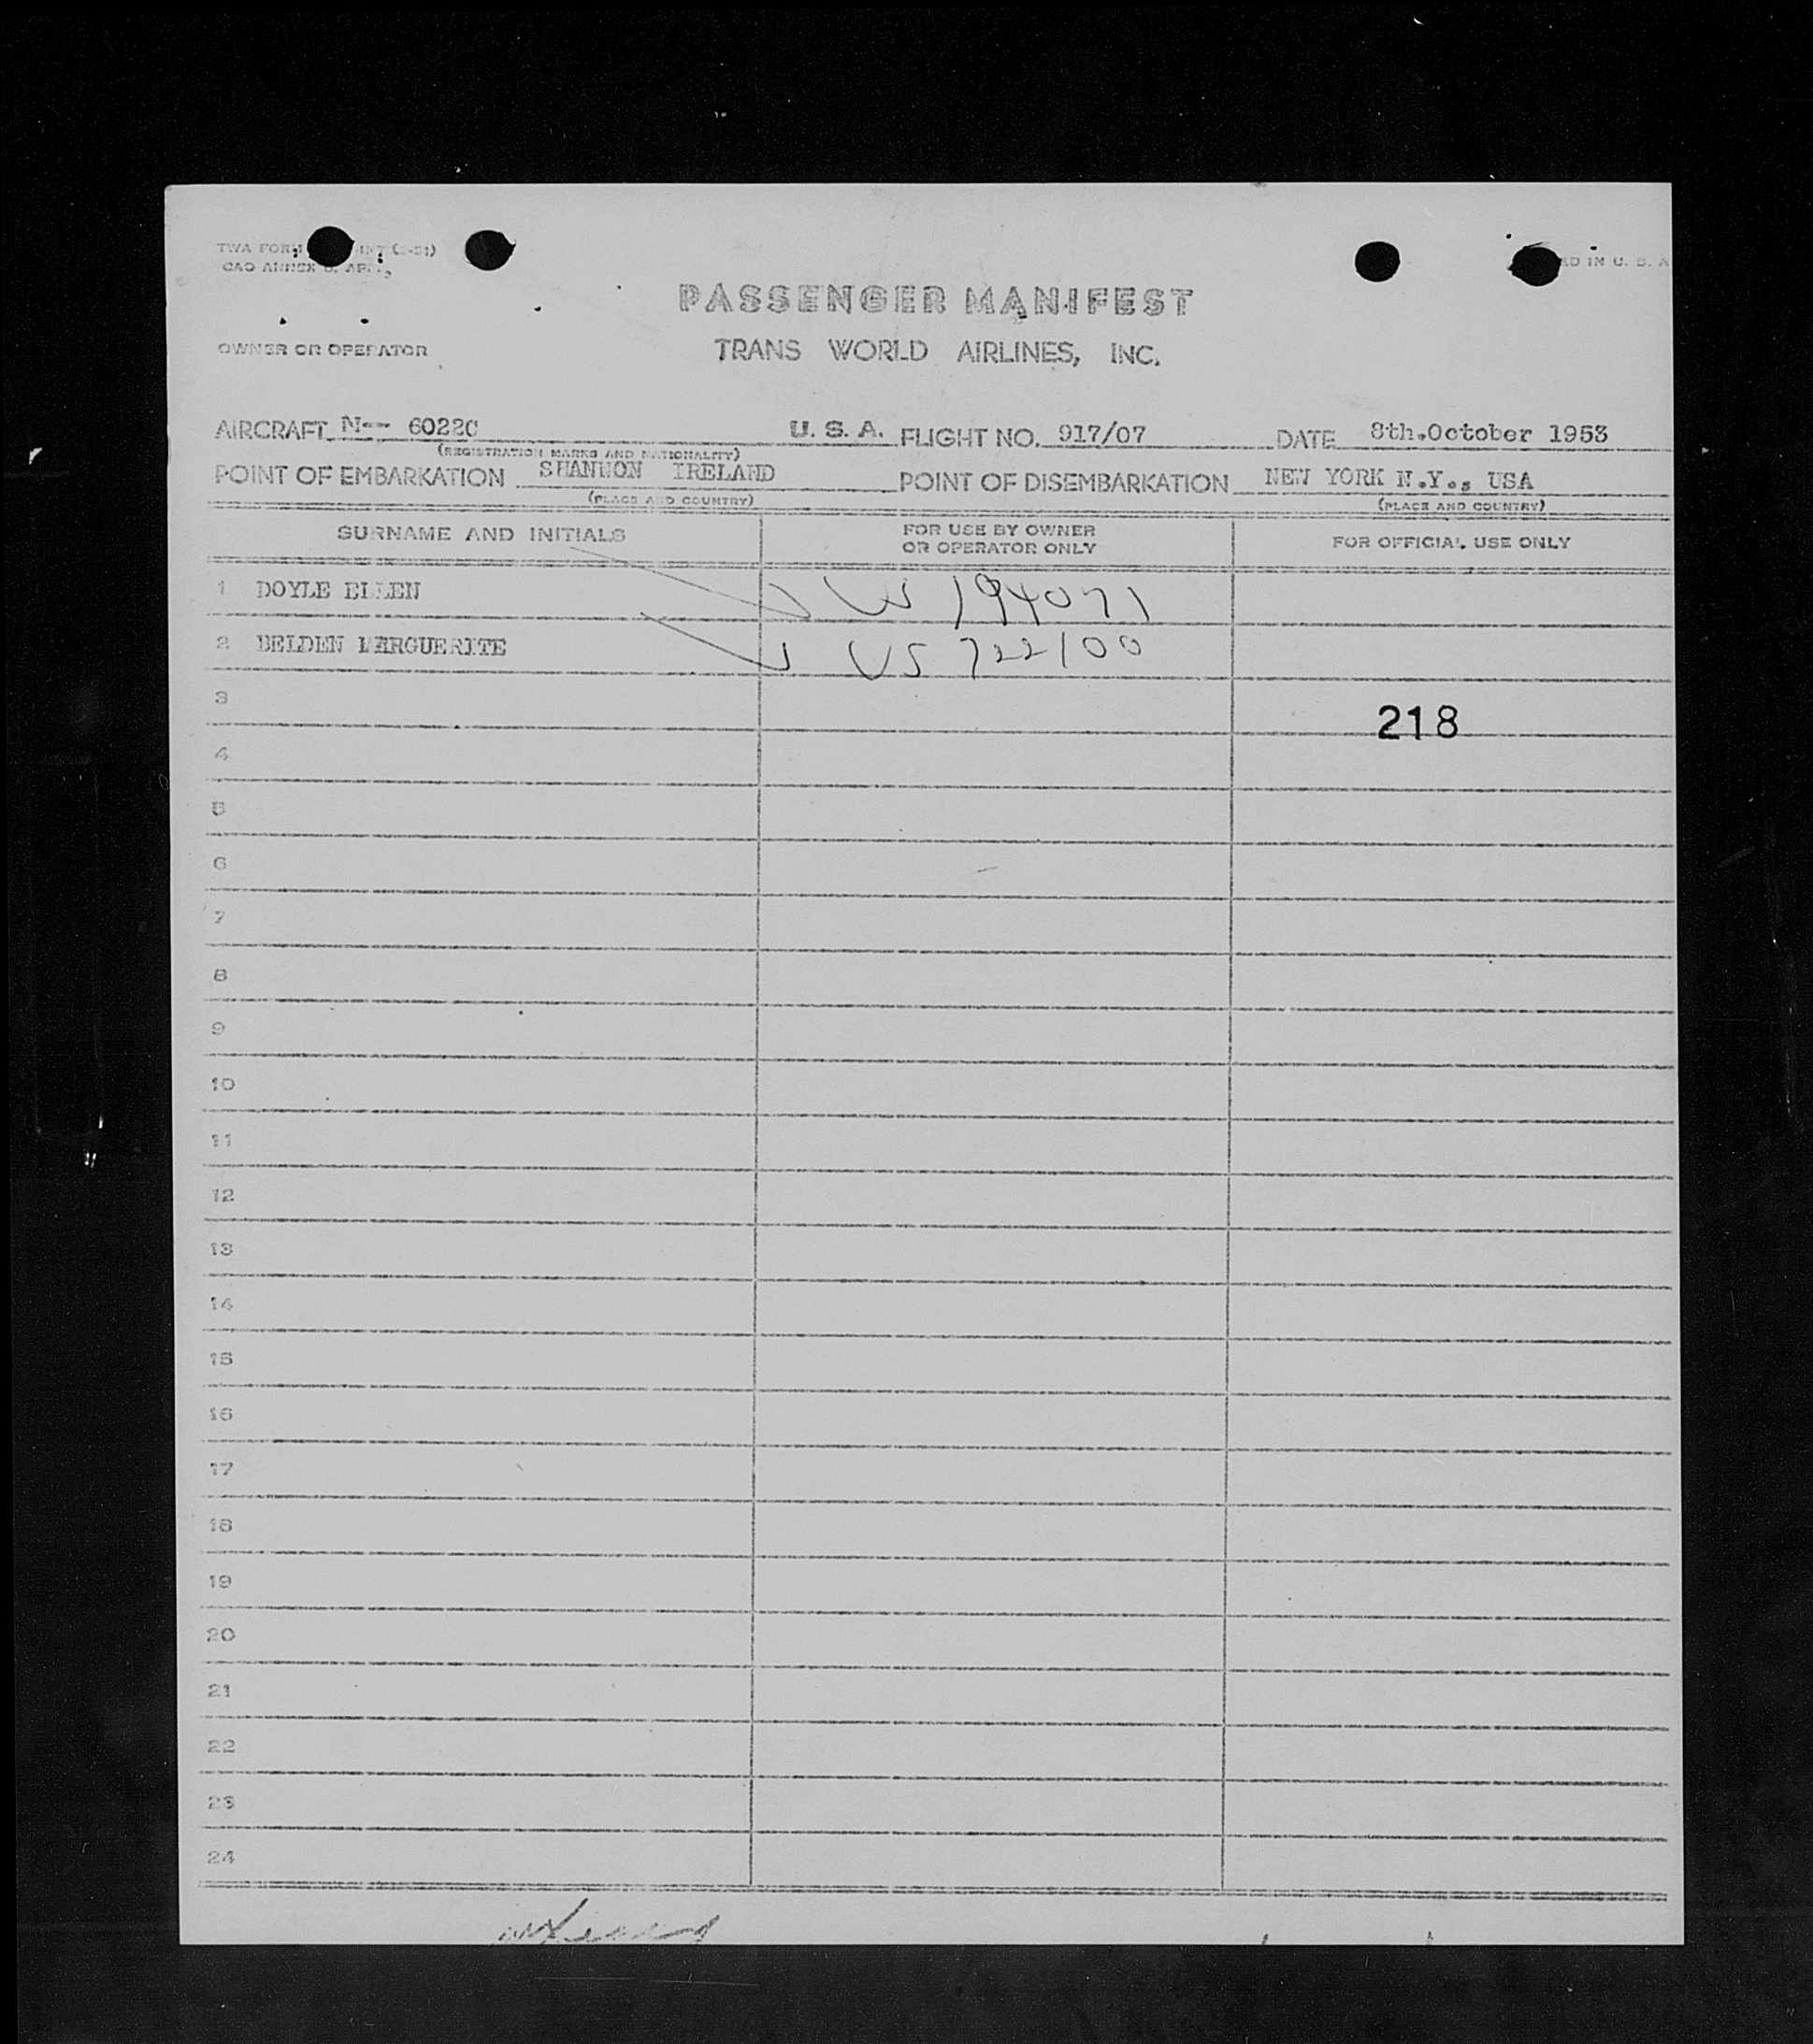 TWA FORM
CAO ANNEX
IN U. S. A
PASSENGER MANIFEST
OWNER OR OPERATOR
TRANS WORLD AIRLINES, INC.
AIRCRAFT N-- 6022C U. S. A. FLIGHT NO. 917/07 DATE 8th.October 1953
(REGISTRATION MARKS AND NATIONALITY)
POINT OF EMBARKATION SHANNON IRELAND POINT OF DISEMBARKATION NEW YORK N.Y., USA
(PLACE AND COUNTRY) (PLACE AND COUNTRY)
SURNAME AND INITIALS FOR USE BY OWNER OR OPERATOR ONLY FOR OFFICIAL USE ONLY
1 DOYLE ELLEN 194071
2 BELDEN MARGUERITE US 722100
3
218
4
5
6
7
8
9
10
11
12
13
14
15
16
17
18
19
20
21
22
23
24